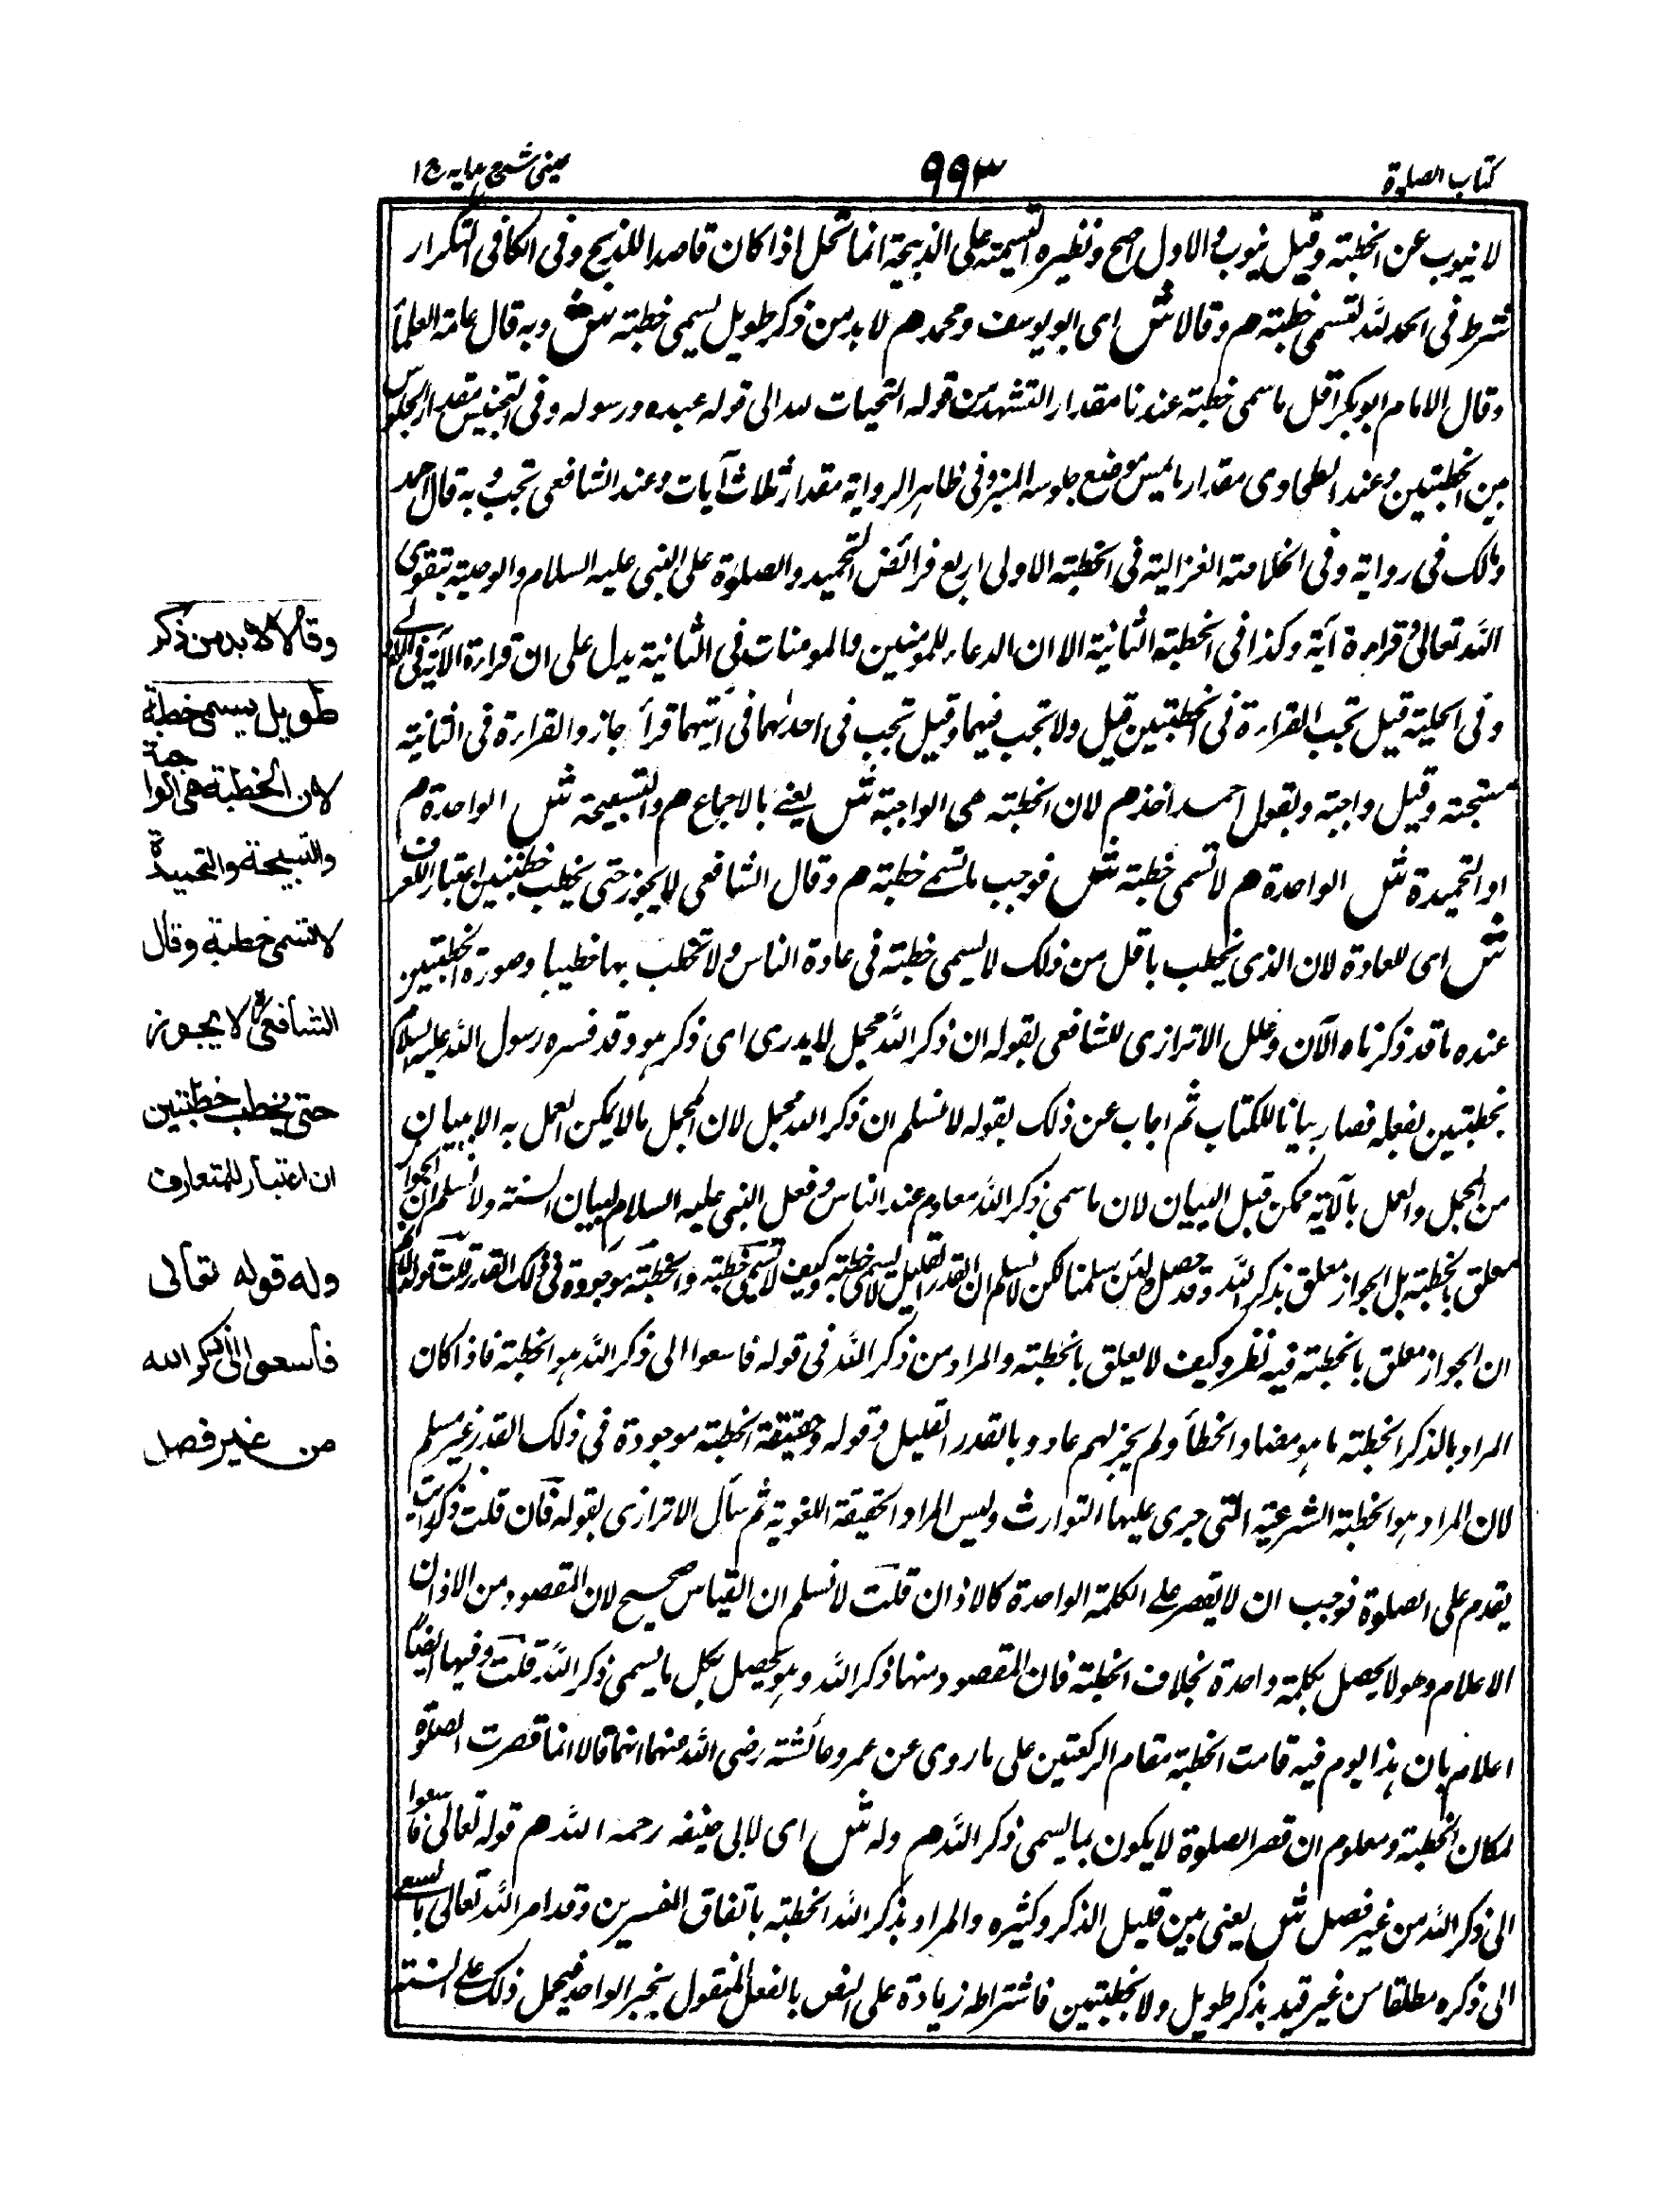 كتاب الصلوة
٩٩٣
عينى شرح هدايه ج ١
لا ينوب عن الخطبة وقيل ينوب والاول اصح ونظيره التسمية على الذبيحة انما تحل اذا كان قاصدا للذبح وفى الكافى التكرار
شرط فى الحمد لله لتسمى خطبة هم وقالا ش اى ابو يوسف ومحمد هم لا بد من ذكر طويل يسمى خطبة ش وبه قال عامة العلماء
وقال الامام ابو بكر اقل ما سمى خطبة عندنا مقدار التشهد من قوله التحيات لله الى قوله عبده ورسوله وفى التجنيس مقدار الجلوس
بين الخطبتين وعند الطحاوى مقدار ما يمس موضع جلوسه المنبر وفى ظاهر الرواية مقدار ثلاث آيات وعند الشافعى تجب وبه قال احمد
ومالك فى رواية وفى الخلاصة الغزالية فى الخطبة الاولى اربع فرائض التحميد والصلوة على النبى عليه السلام والوصية بتقوى
الله تعالى وقراءة آية وكذا فى الخطبة الثانية الا ان الدعاء للمومنين والمومنات فى الثانية يدل على ان قراءة الآية فى الاولى
وفى الحلية قيل تجب القراءة فى الخطبتين قيل ولا تجب فيهما وقيل تجب فى احداهما فى ايتهما قرأ جاز والقراءة فى الثانية
مستحبة وقيل واجبة وبقول احمد اخذ هم لان الخطبة هى الواجبة ش يعنى بالاجماع هم والتسبيحة ش الواحدة هم
او التحميدة ش الواحدة هم لا تسمى خطبة ش فوجب ما تسمى خطبة هم وقال الشافعى لا يجوز حتى يخطب خطبتين اعتبارا للعرف
ش اى للعادة لان الذى يخطب باقل من ذلك لا يسمى خطبة فى عادة الناس ولا تخطب بها خطيبا وصورة الخطبتين
عنده ما قد ذكرناه الآن وعلل الاترازى للشافعى بقوله ان ذكر الله مجمل لا يدرى اى ذكر هو وقد فسره رسول الله عليه السلام
بخطبتين بفعله فصار بيانا للكتاب ثم اجاب عن ذلك بقوله لا نسلم ان ذكر الله مجمل لان المجمل مالا يمكن العمل به الا ببيان
من المجمل والعمل بالآية ممكن قبل البيان لان ما سمى ذكر الله معلوم عند الناس وفعل النبى عليه السلام لبيان السنة ولا نسلم ان الجواز
معلق بالخطبة بل الجواز معلق بذكر الله وقد حصل ولئن سلمنا لكن لا نسلم ان القدر القليل لا يسمى خطبة وكيف لا تسمى خطبة والخطبة موجودة فى ذلك القدر قلت قوله لا نسلم
ان الجواز معلق بالخطبة فيه نظر وكيف لا يعلق بالخطبة والمراد من ذكر الله فى قوله فاسعوا الى ذكر الله هو الخطبة فاذا كان
المراد بالذكر الخطبة ما هو مضاد الخطأ ولم يجز لهم عادو بالقدر القليل وقوله وحقيقة الخطبة موجودة فى ذلك القدر غير مسلم
لان المراد هو الخطبة الشرعية التى جرى عليها التوارث وليس المراد الحقيقة اللغوية ثم سأل الاترازى بقوله فان قلت ذكر
يقدم على الصلوة فوجب ان لا يقصر على الكلمة الواحدة كالاذان قلت لا نسلم ان القياس صحيح لان المقصود من الاذان
الاعلام وهو لا يحصل بكلمة واحدة بخلاف الخطبة فان المقصود منها ذكر الله وهو يحصل بكل ما يسمى ذكر الله قلت وفيها ايضا
اعلام بان هذا يوم فيه قامت الخطبة مقام الركعتين على ما روى عن عمر وعائشة رضى الله عنهما انهما قالا انما قصرت الصلوة
لمكان الخطبة ومعلوم ان قصر الصلوة لا يكون بما يسمى ذكر الله هم وله ش اى لابى حنيفه رحمه الله هم قوله تعالى فاسعوا
الى ذكر الله من غير فصل ش يعنى بين قليل الذكر وكثيره والمراد بذكر الله الخطبة باتفاق المفسرين وقد امر الله تعالى بالسعى
الى ذكره مطلقا من غير قيد بذكر طويل ولا بخطبتين فاشتراطه زيادة على النص بالفعل المنقول بخبر الواحد فيحمل ذلك على السنة
وقالا لا بد من ذكر
طويل يسمى خطبة
لان الخطبة هى الواجبة
والتسبيحة والتحميدة
لا تسمى خطبة وقال
الشافعى لا يجوز
حتى يخطب خطبتين
ان اعتبار للمتعارف
وله قوله تعالى
فاسعوا الى ذكر الله
من غير فصل